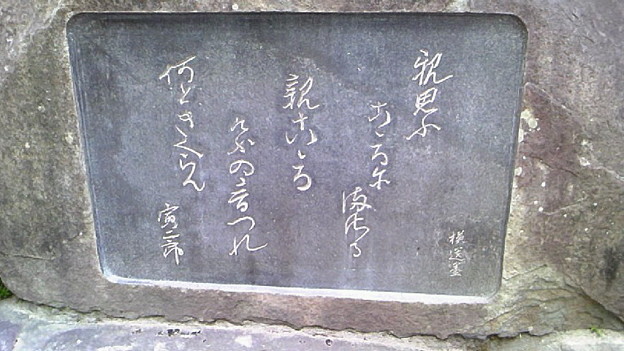 親思ふ
こゝろに
まさる
親こゝろ
けふの音つれ
何ときくらん
寅二郎